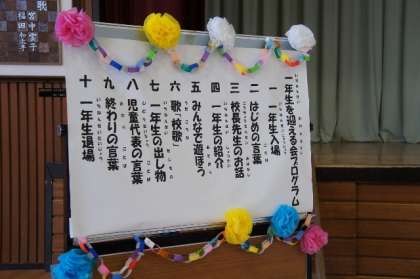 一年生を迎える会プログラム
一 一年生入場
二 はじめの言葉
三 校長先生のお話
四 一年生の紹介
五 みんなで遊ぼう
六 歌「校歌」
七 一年生の出し物
八 児童代表の言葉
九 終わりの言葉
十 一年生退場
歌